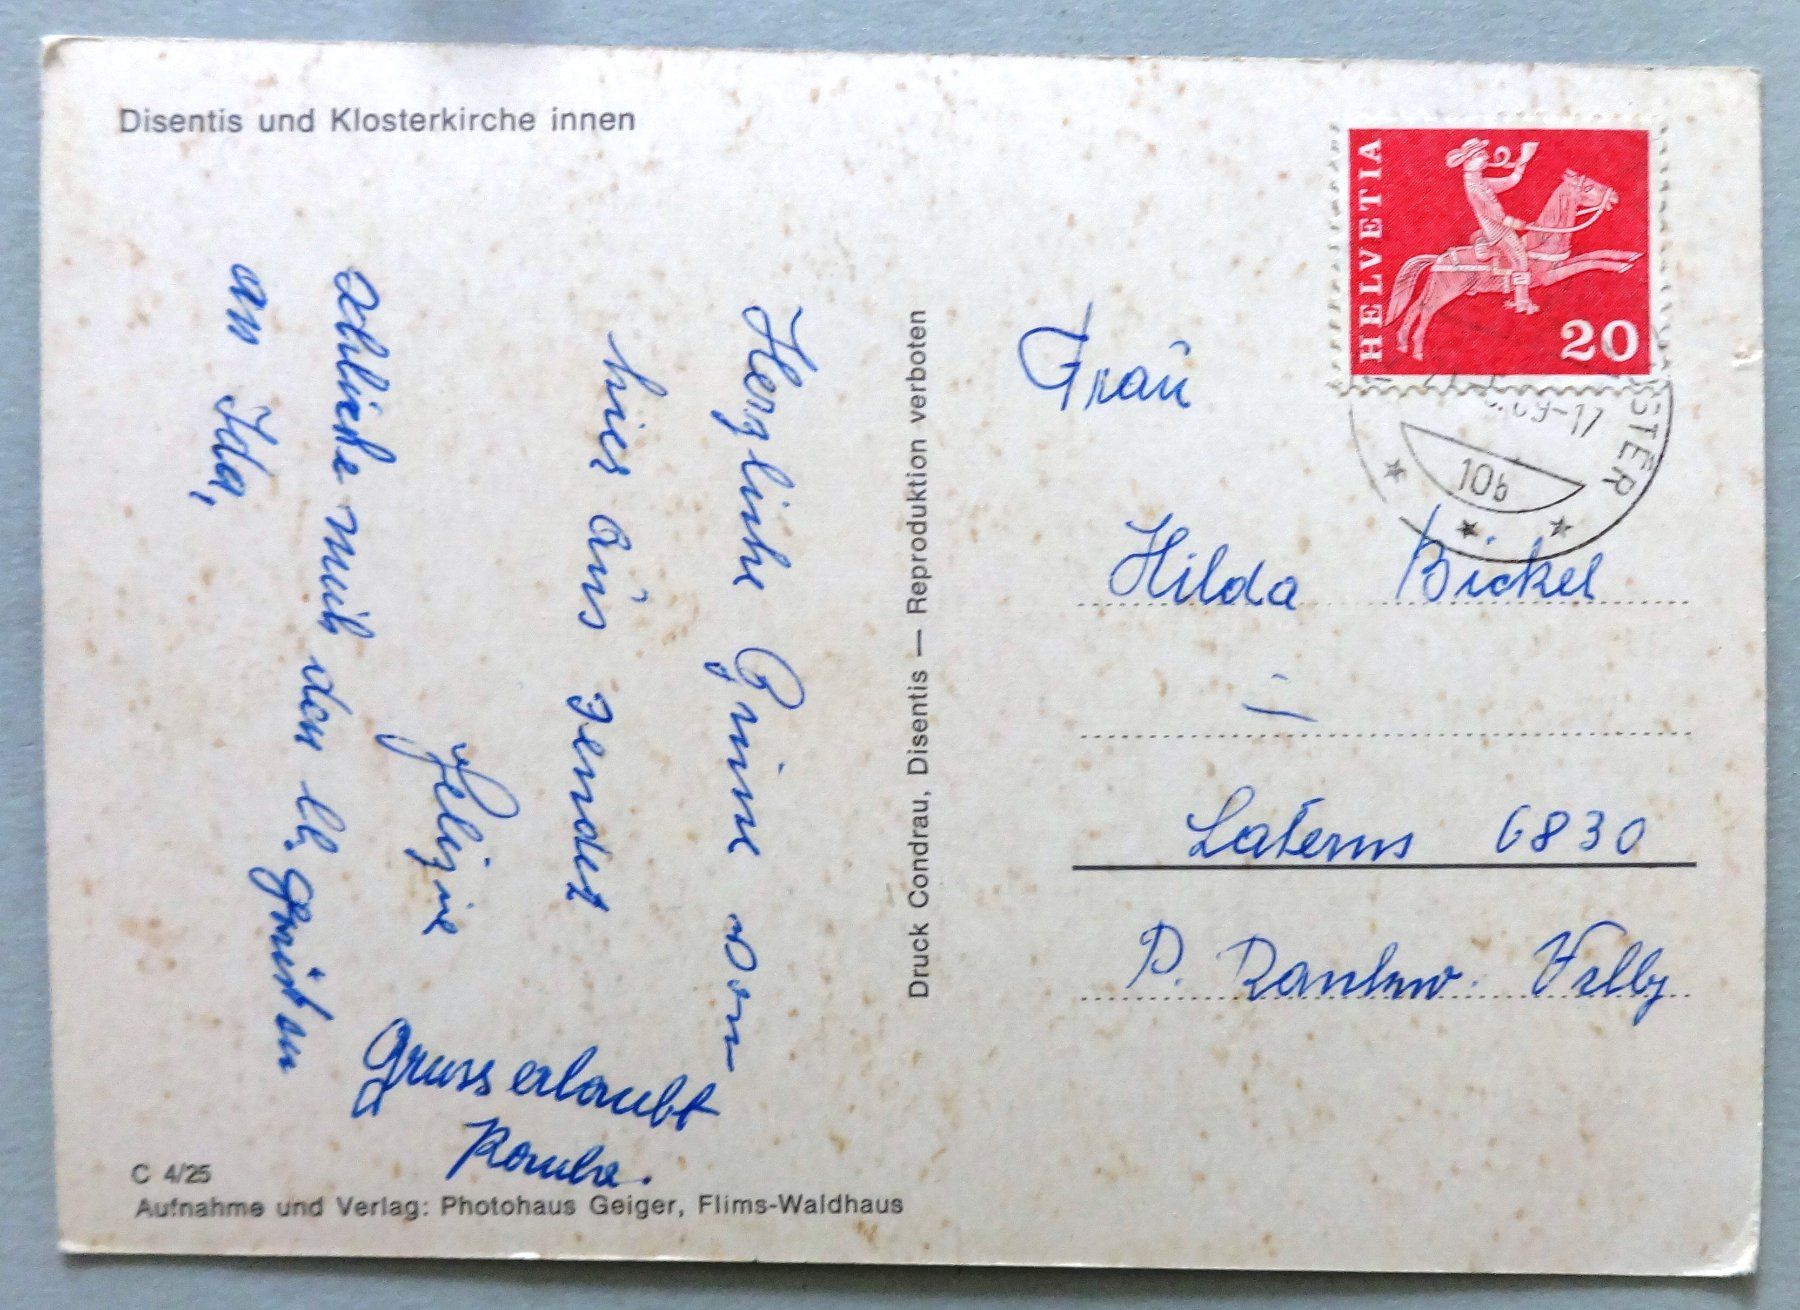 Disentis und Klosterkirche innen
HELVETIA
20
.69-17
STER
10b
Herzliche Grüsse von
hier aus sendet
Schliesse mich den lb. Grüssen an
an Ida,
Gruss erlaubt
Druck Condrau, Disentis — Reproduktion verboten
Frau
Hilda Bickel
Laterns 6830
P. Rankw.
C 4/25
Aufnahme und Verlag: Photohaus Geiger, Flims-Waldhaus